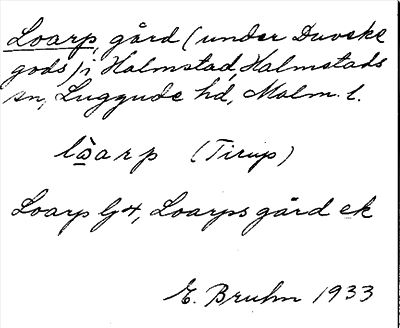 Loarp, gård (under Duveke
gods) i Halmstad, Halmstads
sn, Luggude hd, Malm. l.
lòarp (Tirup)
Loarp G4, Loarps gård ek
E. Bruhn 1933